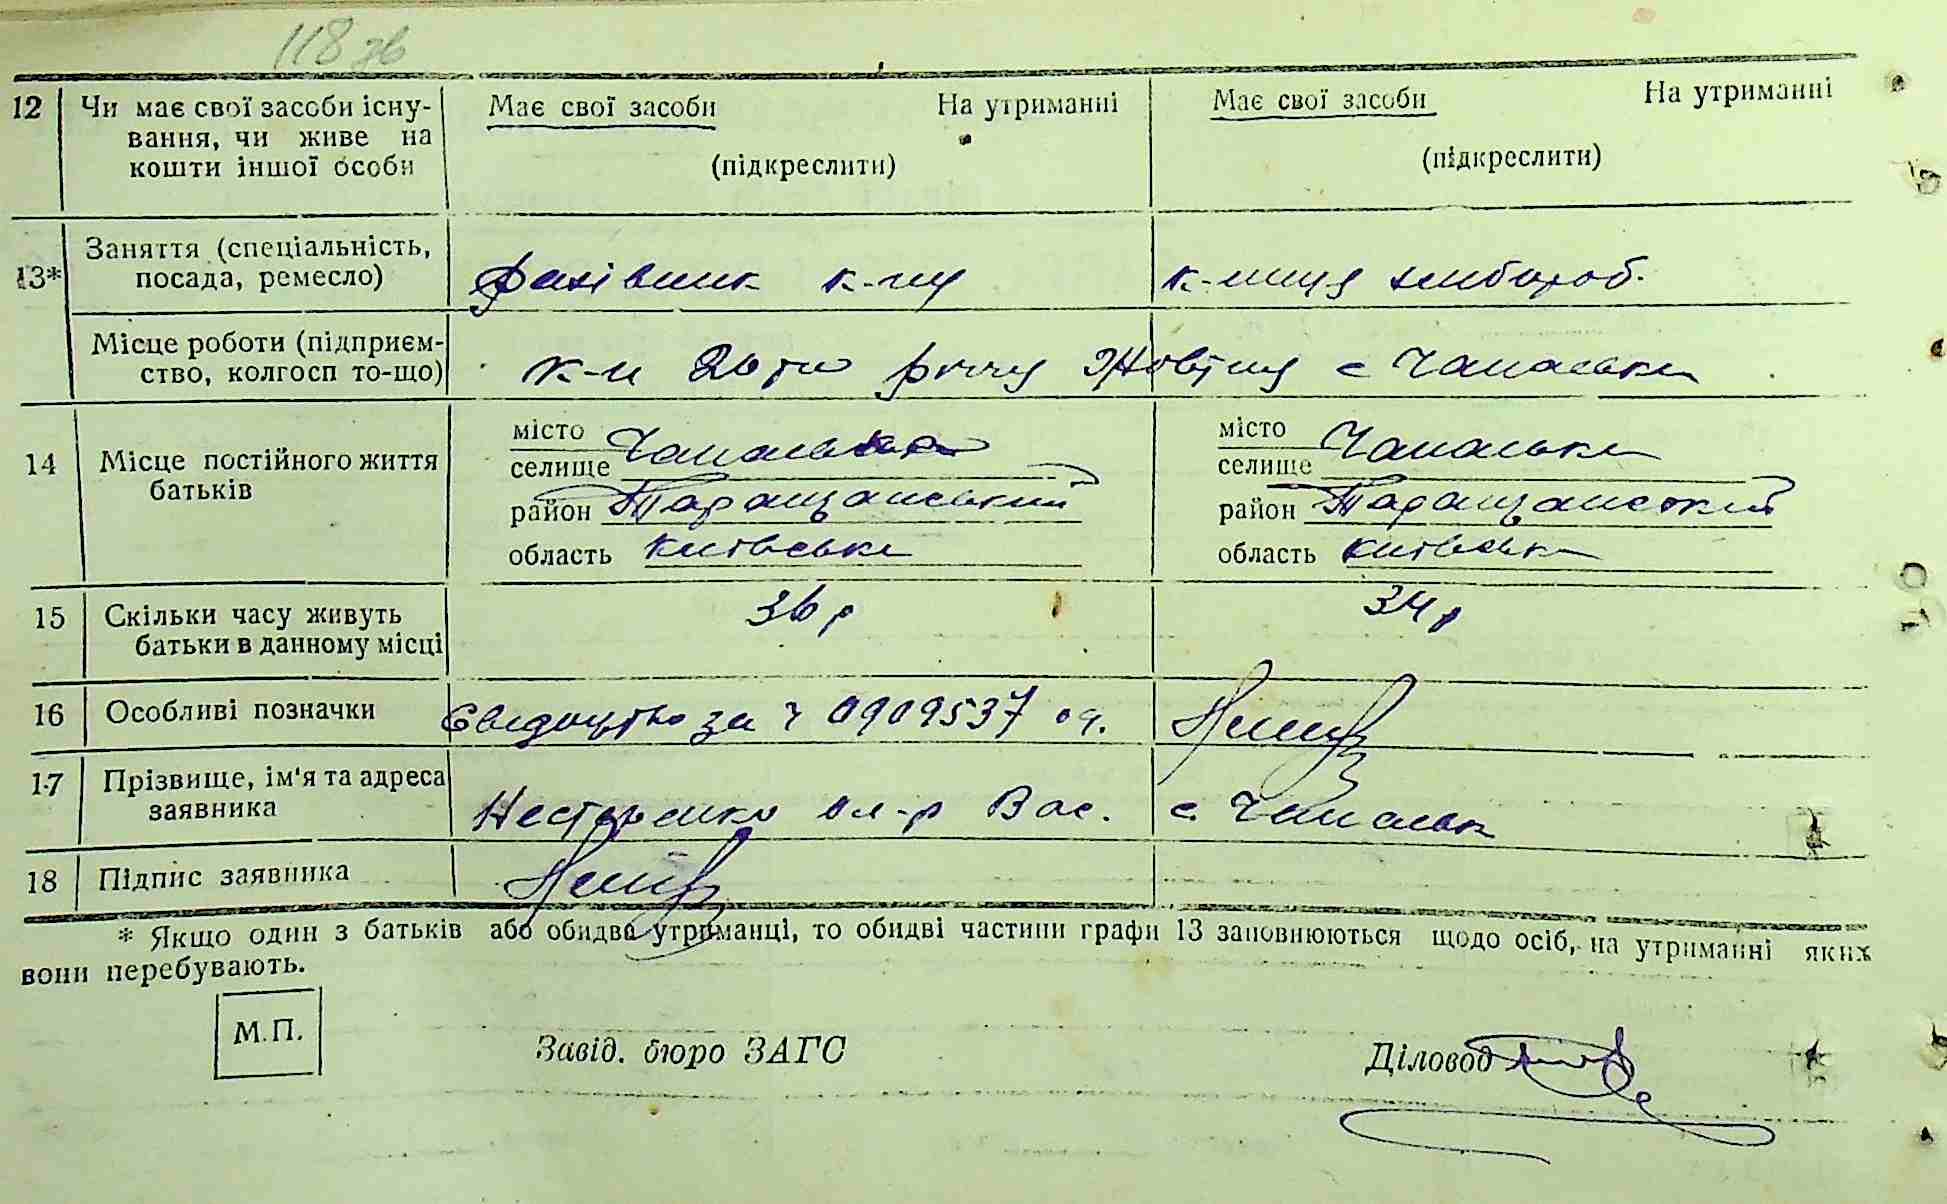 118 зв
12 Чи має свої засоби існу- Має свої засоби На утриманні Має свої засоби На утриманні
вання, чи живе на
кошти іншої особи (підкреслити) (підкреслити)
13* Заняття (спеціальність,
посада, ремесло) к-пу к-ниця хлібороб.
Місце роботи (підприєм-
ство, колгосп то-що) к-п 20 ти річчу Жовтну с Чапаєвка
14 Місце постійного життя
батьків
місто Чапаєвка місто Чапаєвка
селище селище
район Таращанський район Таращанський
область Київська область Київська
15 Скільки часу живуть 36 р 34 р
батьки в данному місці
16 Особливі позначки Свидоцтво за ч 0909537 од.
17 Прізвище, ім'я та адреса
заявника Нестеренко Ол-р Вас. с. Чапаєвк
18 Підпис заявника
* Якщо один з батьків або обидва утриманці, то обидві частини графи 13 заповнюються щодо осіб, на утриманні яких
вони перебувають.
М.П.
Завід. бюро ЗАГС Діловод